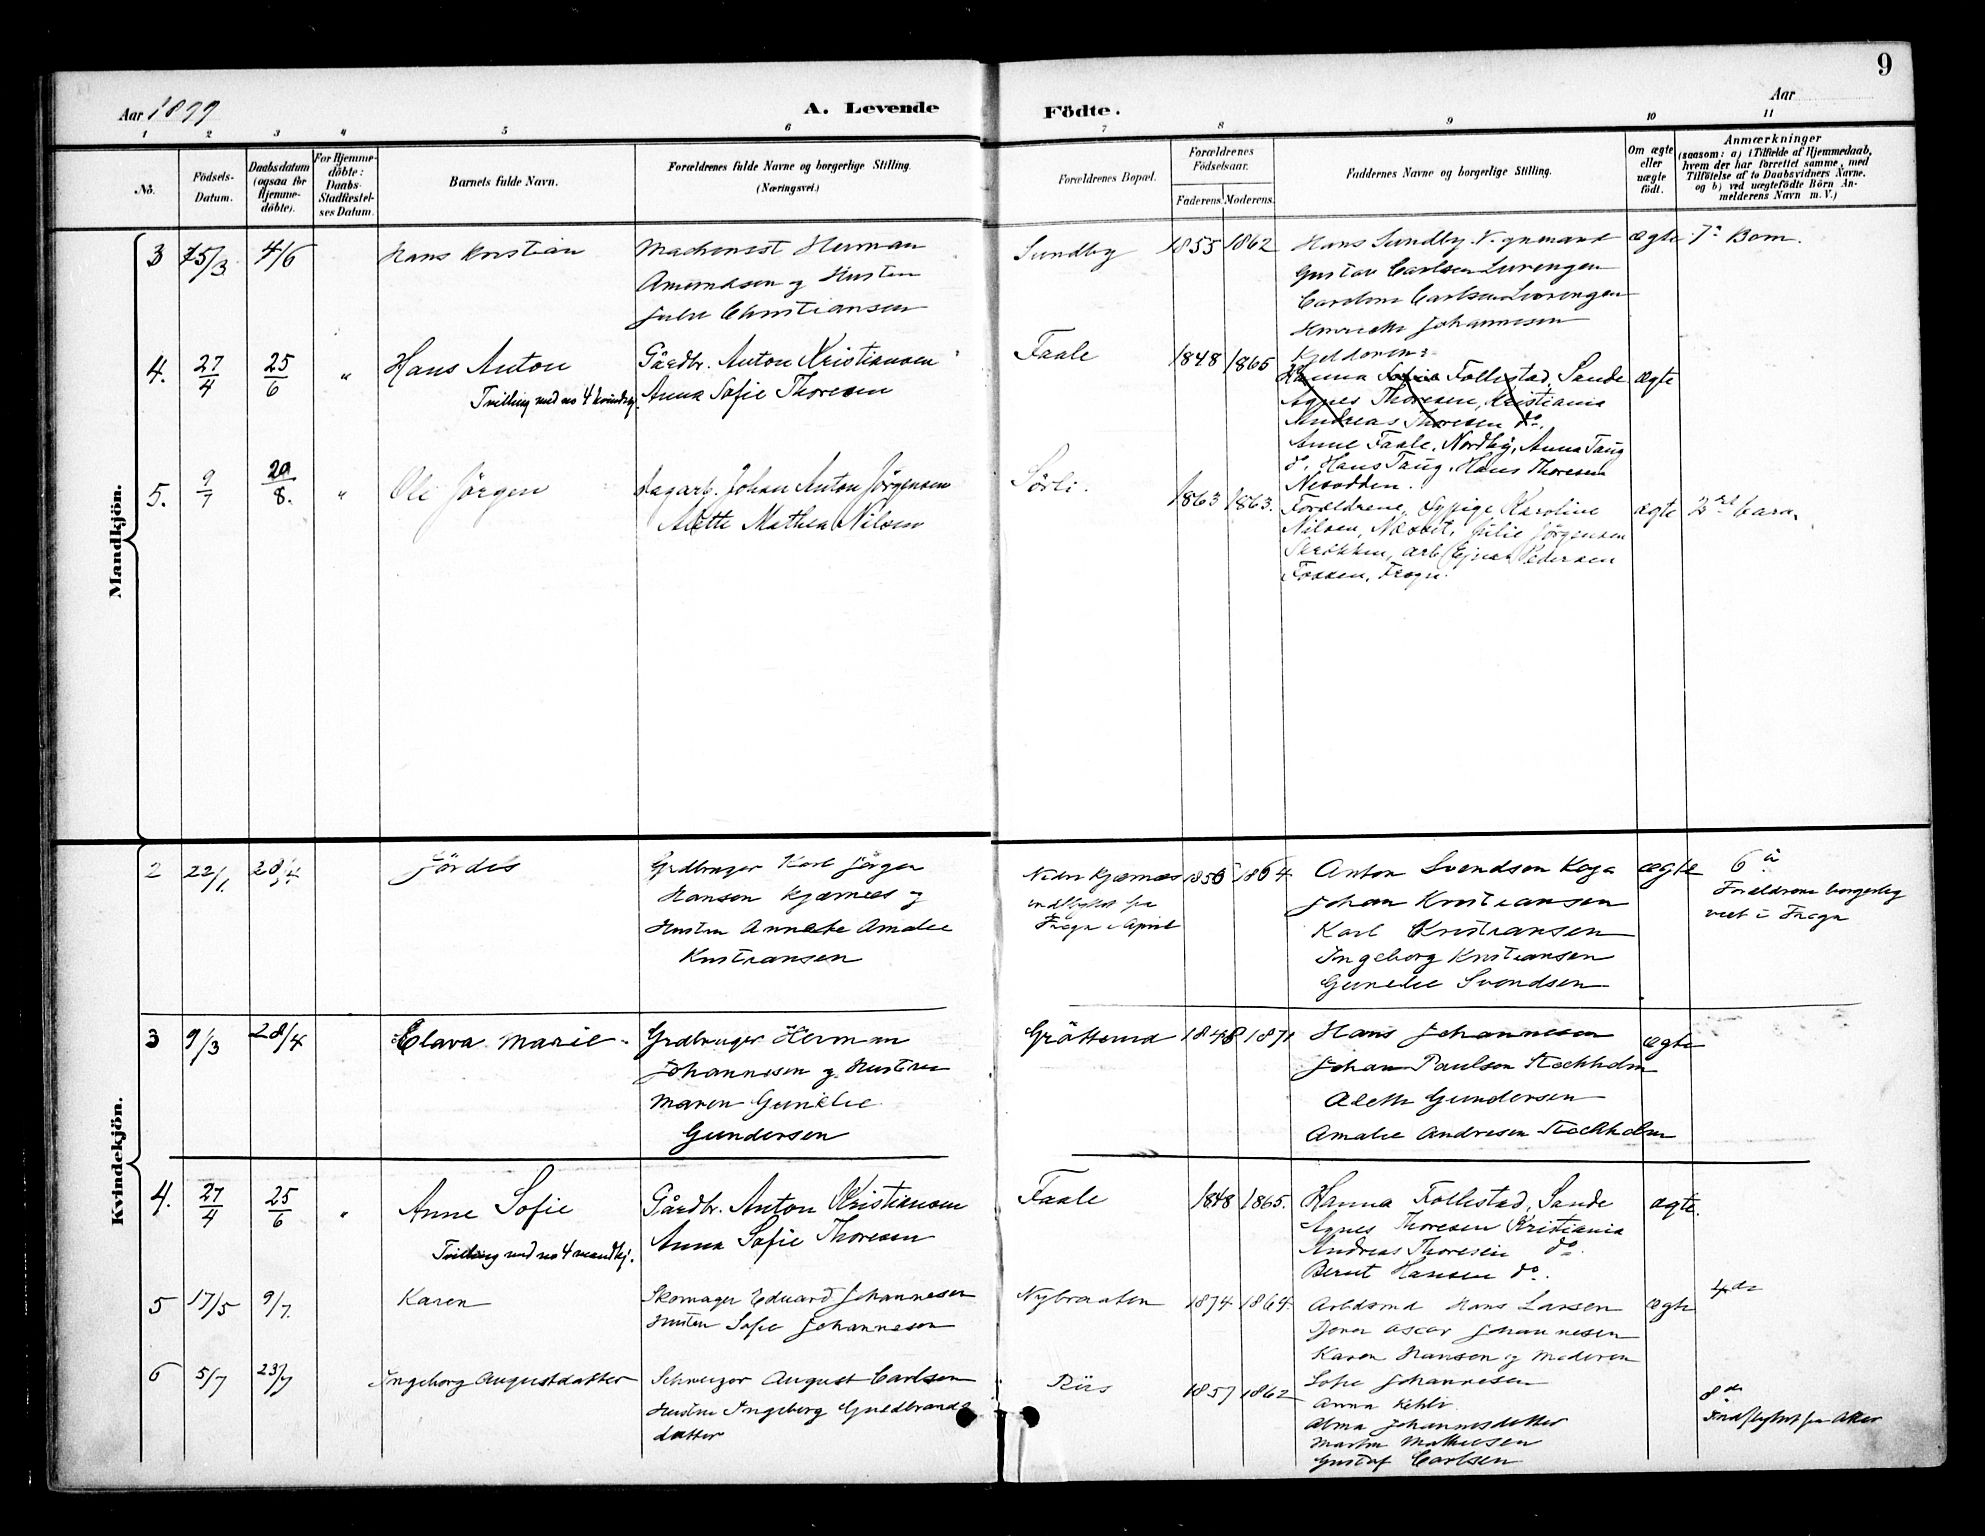 9
Aar 1899
A. Levende Födte.
Aar
1 2 3 4 5 6 7 8 9 10 11
No.
Födsels-Datum.
Daabsdatum (ogsaa for Hjemmedöbte).
For Hjemmedöbte: Daabs-Stadfæstelses Datum.
Barnets fulde Navn.
Forældrenes fulde Navne og borgerlige Stilling.
(Næringsvei.)
Forældrenes Bopæl.
Forældrenes Födselsaar.
Faderens. Moderens.
Faddernes Navne og borgerlige Stilling.
Om ægte eller uægte födt.
Anmærkninger
(saasom: a) i Tilfælde af Hjemmedaab,
hvem der har forrettet samme, med
Tilföielse af to Daabsvidners Navne.
og b) ved uægtefödte Börn An-
melderens Navn m. V.)
Mandkjön.
3 15/3 4/6 Hans Kristian Machinist Herman Sundby 1855 1862 Hans Sundby ægte 7de Barn.
Amundsen og Hustru Gustav Carlsen Lurengen
Julie Christiansen Caroline Carlsen Lurengen
Henriette Johannesen
4. 27/4 25/6 " Hans Anton Gårdbr. Anton Kristiansen Faale 1848 1865
Hanna Sofie Follestad, Sande ægte
Tvilling med no 4 kvindekj. Anna Sofie Thoresen Agnes Thoresen, Kristiania
Andreas Thoresen do.
Anne Faale, Nordby, Anna Taug
do. Hans Taug, Hans Thoresen
Nesodden.
5. 9/7 20/8. " Ole Jörgen Dagarb. Johan Anton Jörgensen Sörli. 1863 1863. Forældrene, Sypige Karoline ægte
Alette Mathea Nilsen Nilsen, Næsset, Julie Jörgensen
arb. Ejnar Pedersen
Fossen, Frogn.
Kvindekjön.
2 22/1 28/4 Hjördis Grdbruger Karl Jörgen Nedre Kjærnæs 1856 1864 Anton Svendsen Koga ægte 6
Hansen Kjærnæs og indflyttet fra Johan Kristiansen Forældrene borgerlig
Hustru Annette Amalie Frogn i April Karl Kristiansen viet i Frogn
Kristiansen Ingeborg Kristiansen
Gunelie Svendsen
3 9/3 28/4 Clara Marie Grdbruger Herman Gråtterud 1848 1871 Hans Johannesen ægte
Johannesen og Hustru Johan Paulsen Stockholm
Maren Gunelie Alette Gundersen
Gundersen Amalie Andresen Stockholm
4. 27/4 25/6 " Anne Sofie Gårdbr. Anton Kristiansen Faale 1848 1865. Hanna Follestad, Sande ægte.
Tvilling med no 4 mandkj. Anna Sofie Thoresen Agnes Thoresen Kristiania
Andreas Thoresen do.
Bernt Hansen do.
5 17/5 9/7. Karen Skomager Eduard Johannesen Nybraaten 1874 1864. Arbdsmd Hans Larsen ægte 4de
Hustru Sofie Johannesen Oscar Johannesen
Karen Hansen og Moderen
6 5/7 23/7 Ingeborg Augustdatter Schweizer August Carlsen Riis 1857 1862 Sofie Johannesen 8de
Hustru Ingeborg Guldbrands Anna Indflyttet fra Aker
datter Alma Johannesdatter
Martin Mathisen
Gustaf Carlsen